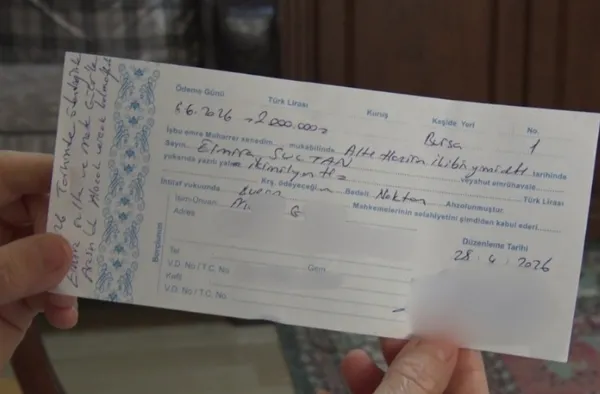 Ödeme Günü Türk Lirası Kuruş Keşide Yeri No.
6.6.2026 =2000.000= Bursa 1
İşbu emre Muharrer senedim mukabilinde Altı Haziran ikibinyirmialtı tarihinde
Sayın Elmira SULTAN veyahut emrühavale
yukarıda yazılı yalnız = ikimilyontl= Türk Lirası
Krş. ödeyeceğim. Bedeli Nakten Ahzolunmuştur.
İhtilaf vukuunda Bursa Mahkemelerinin salahiyetini şimdiden kabul ederi
İsim-Ünvan
Adres
Tel
V.D. No / T.C. No.
Kefil
V.D. No / T.C. No.
Borçlunun
Düzenleme Tarihi
28.4.2026
26 Tarihinde
Elmira